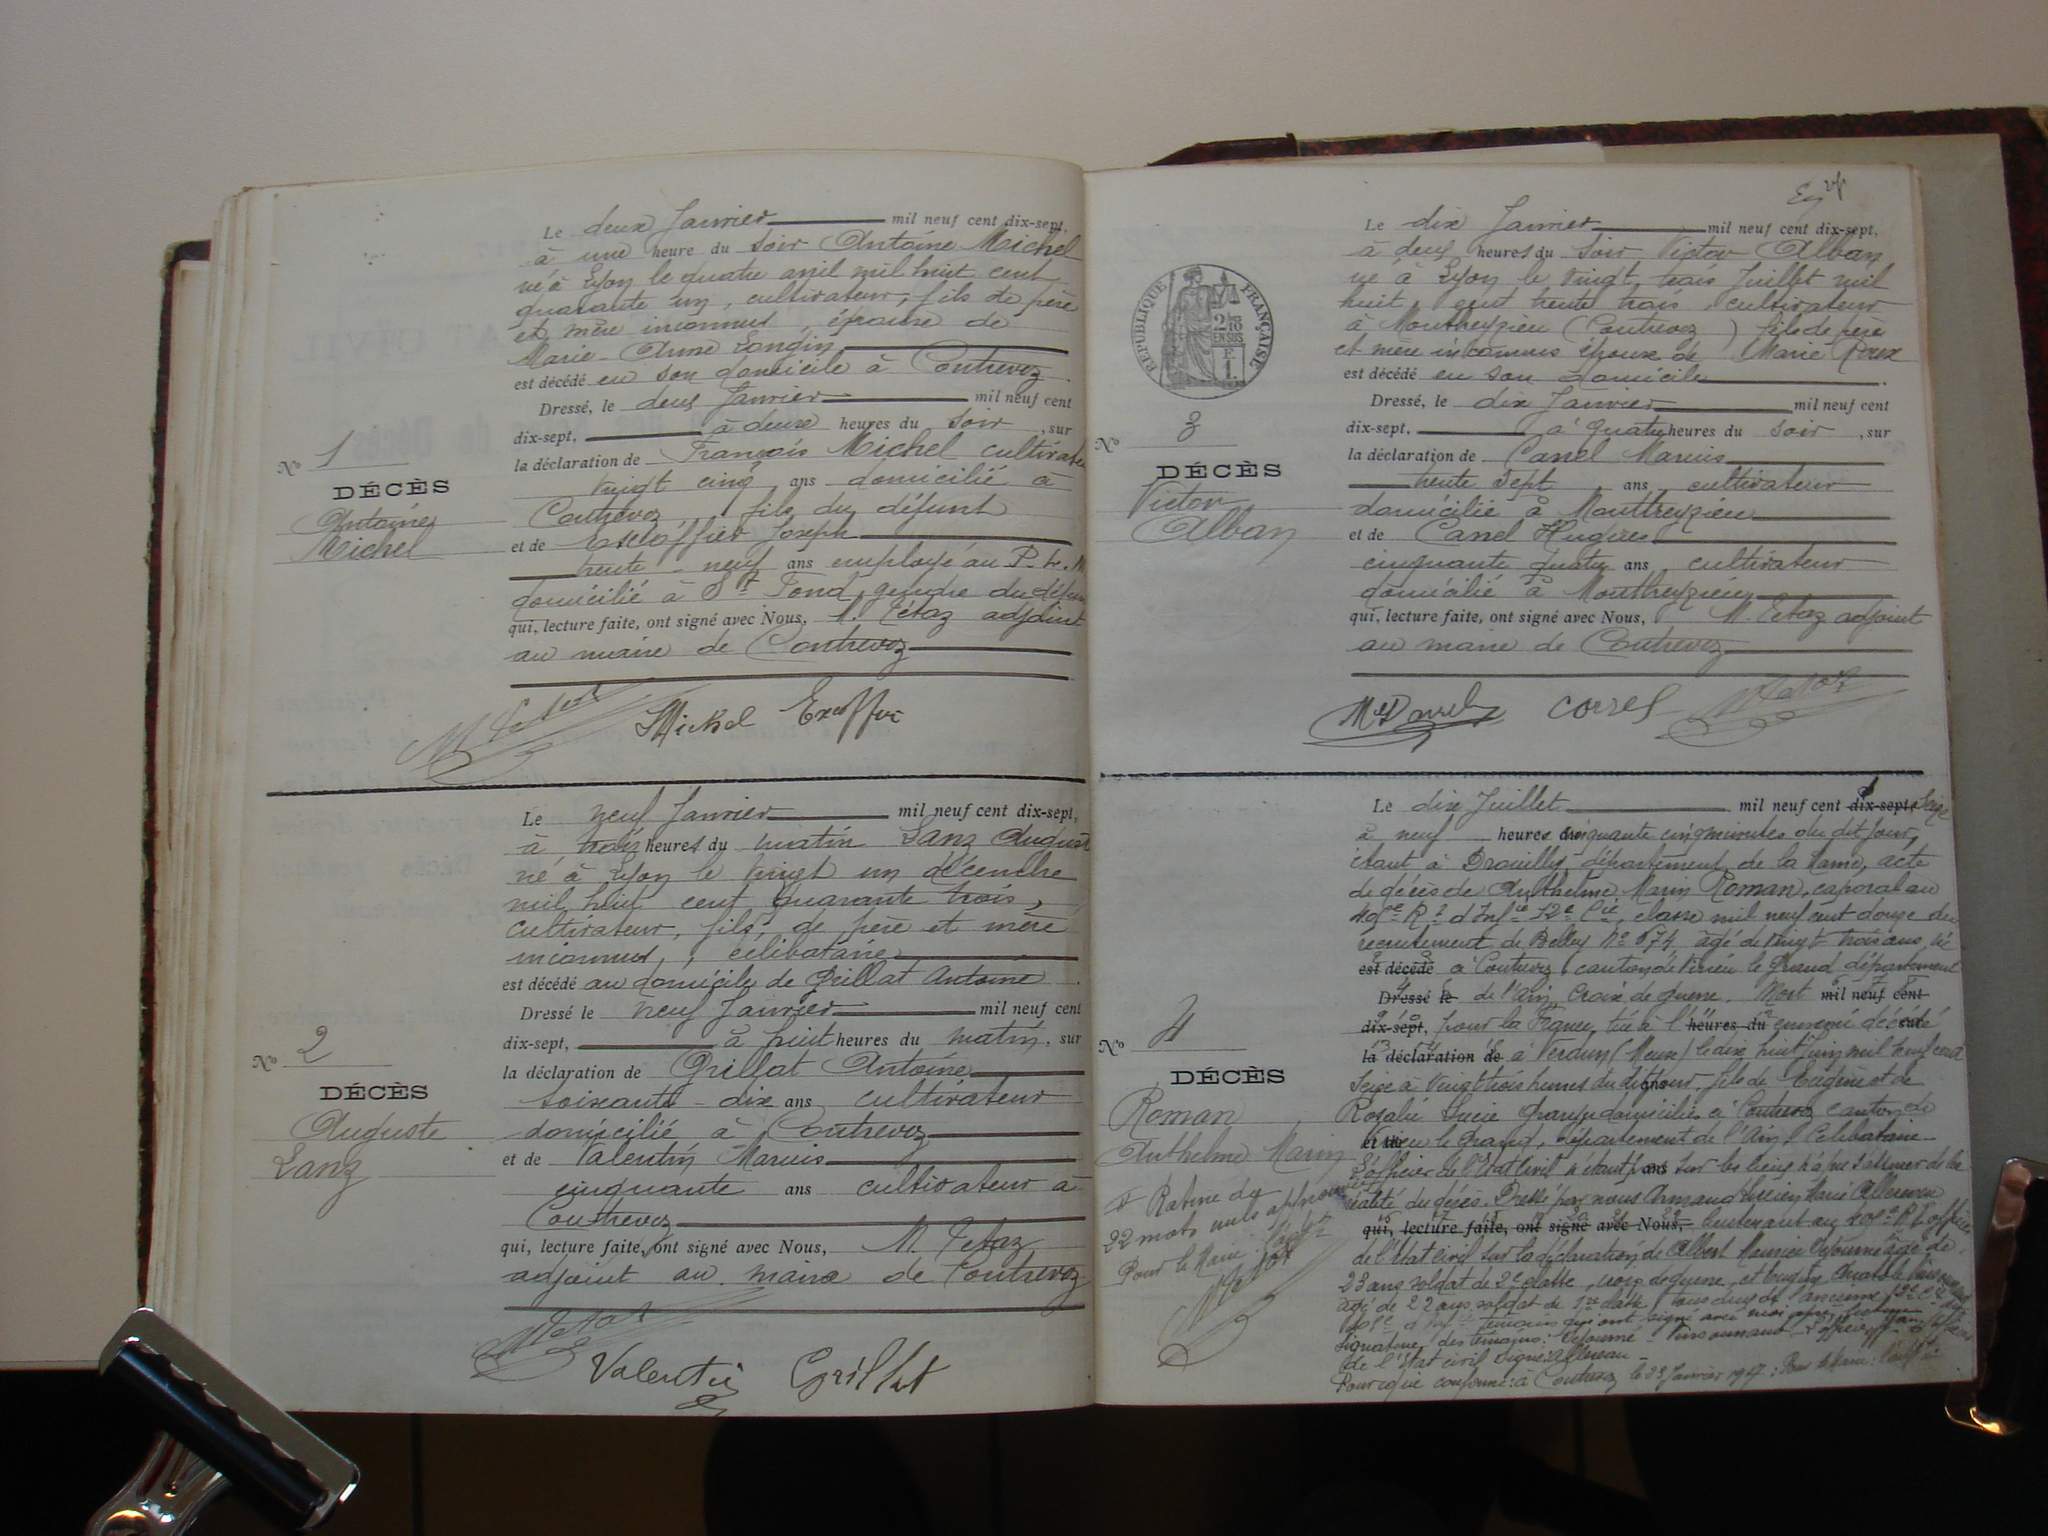 Le deux Janvier mil neuf cent dix-sept,
à une heure du soir Antoine Michel
né à Lyon le quatre avril mil huit cent
quarante un, cultivateur, fils de père
et mère inconnus, époux de
Marie-Anne
est décédé en son domicile à Contrevoz.
Dressé, le deux Janvier mil neuf cent
dix-sept, à deux heures du soir, sur
la déclaration de François Michel cultivateur
vingt cinq ans domicilié à
Contrevoz, fils du défunt
et de Escoffier Joseph
trente-neuf ans employé au P. L. M
domicilié à St Fond, gendre du défunt
qui, lecture faite, ont signé avec Nous, M. Tétaz adjoint
au maire de Contrevoz
Michel Escoffier
No 1
DÉCÈS
Antoine
Michel
Le neuf Janvier mil neuf cent dix-sept,
à trois heures du matin Lanz Auguste
né à Lyon le vingt un décembre
mil huit cent quarante trois,
cultivateur, fils de père et mère
inconnus, célibataire
est décédé au domicile de Grillat Antoine.
Dressé le neuf Janvier mil neuf cent
dix-sept, à huit heures du matin, sur
la déclaration de Grillat Antoine
soixante-dix ans cultivateur
domicilié à Contrevoz
et de Valentin Marius
cinquante ans cultivateur à
Contrevoz
qui, lecture faite, ont signé avec Nous, M. Tétaz
adjoint au maire de Contrevoz
Valentin Grillat
No 2
DÉCÈS
Auguste
Lanz
RÉPUBLIQUE FRANÇAISE
2/10 EN SUS
F.
1.
Le dix Janvier mil neuf cent dix-sept,
à deux heures du soir Victor Alban
né à Lyon le vingt trois Juillet mil
huit cent trente trois, cultivateur
à Montbreyzieu (Contrevoz) fils de père
et mère inconnus époux de Marie Roux
est décédé en son domicile.
Dressé, le dix Janvier mil neuf cent
dix-sept, à quatre heures du soir, sur
la déclaration de Canel Marius
trente sept ans cultivateur
domicilié à Montbreyzieu
et de Canel Hugues
cinquante quatre ans cultivateur
domicilié à Montbreyzieu
qui, lecture faite, ont signé avec Nous, M. Tétaz adjoint
au maire de Contrevoz
No 3
DÉCÈS
Victor
Alban
Le dix Juillet mil neuf cent dix-sept, seize
à neuf heures cinquante cinq minutes du dit jour,
étant à Drouilly département de la Marne, acte
de décès de Anthelme Marin Roman, caporal au
R.t d'Inf.ie 12e Cie, classe mil neuf cent douze de
recrutement de Belley No 674 âgé de vingt trois ans, né
est décédé à Contrevoz, canton de Virieu le Grand département
Dressé le de l'Ain, Croix de guerre. Mort mil neuf cent
dix-sept, pour la France, tué à l'heures du ennemi décédé
la déclaration de à Verdun (Meuse) le dix huit juin mil neuf cent
seize à vingt trois heures du dit jour, fils de Eugène et de
Rosalie Lucie domiciliés à Contrevoz canton de
Virieu le Grand, département de l'Ain. Célibataire
L'officier de l'Etat Civil n'étant pas sur les lieux n'a pu s'assurer de la
réalité du décès. Dressé par nous Armand Lucien Marie Allereau
qui, lecture faite, ont signé avec Nous, lieutenant au officier
de l'Etat Civil sur la déclaration de Albert Maurice Séjourné âgé de
23 ans soldat de 2e classe, croix de guerre, et
âgé de 22 ans soldat de 1re classe, tous deux de l'ancienne 12e Cie
témoins qui ont signé avec moi après lecture
signature des témoins: Séjourné
de l'état civil signé: Allereau
Pour copie conforme: à Contrevoz le 23 Janvier 1917: Pour le Maire: l'adjoint
No 4
DÉCÈS
Roman
Anthelme Marin
Rature de
22 mots nuls approuvée
Pour le Maire: l'adjt